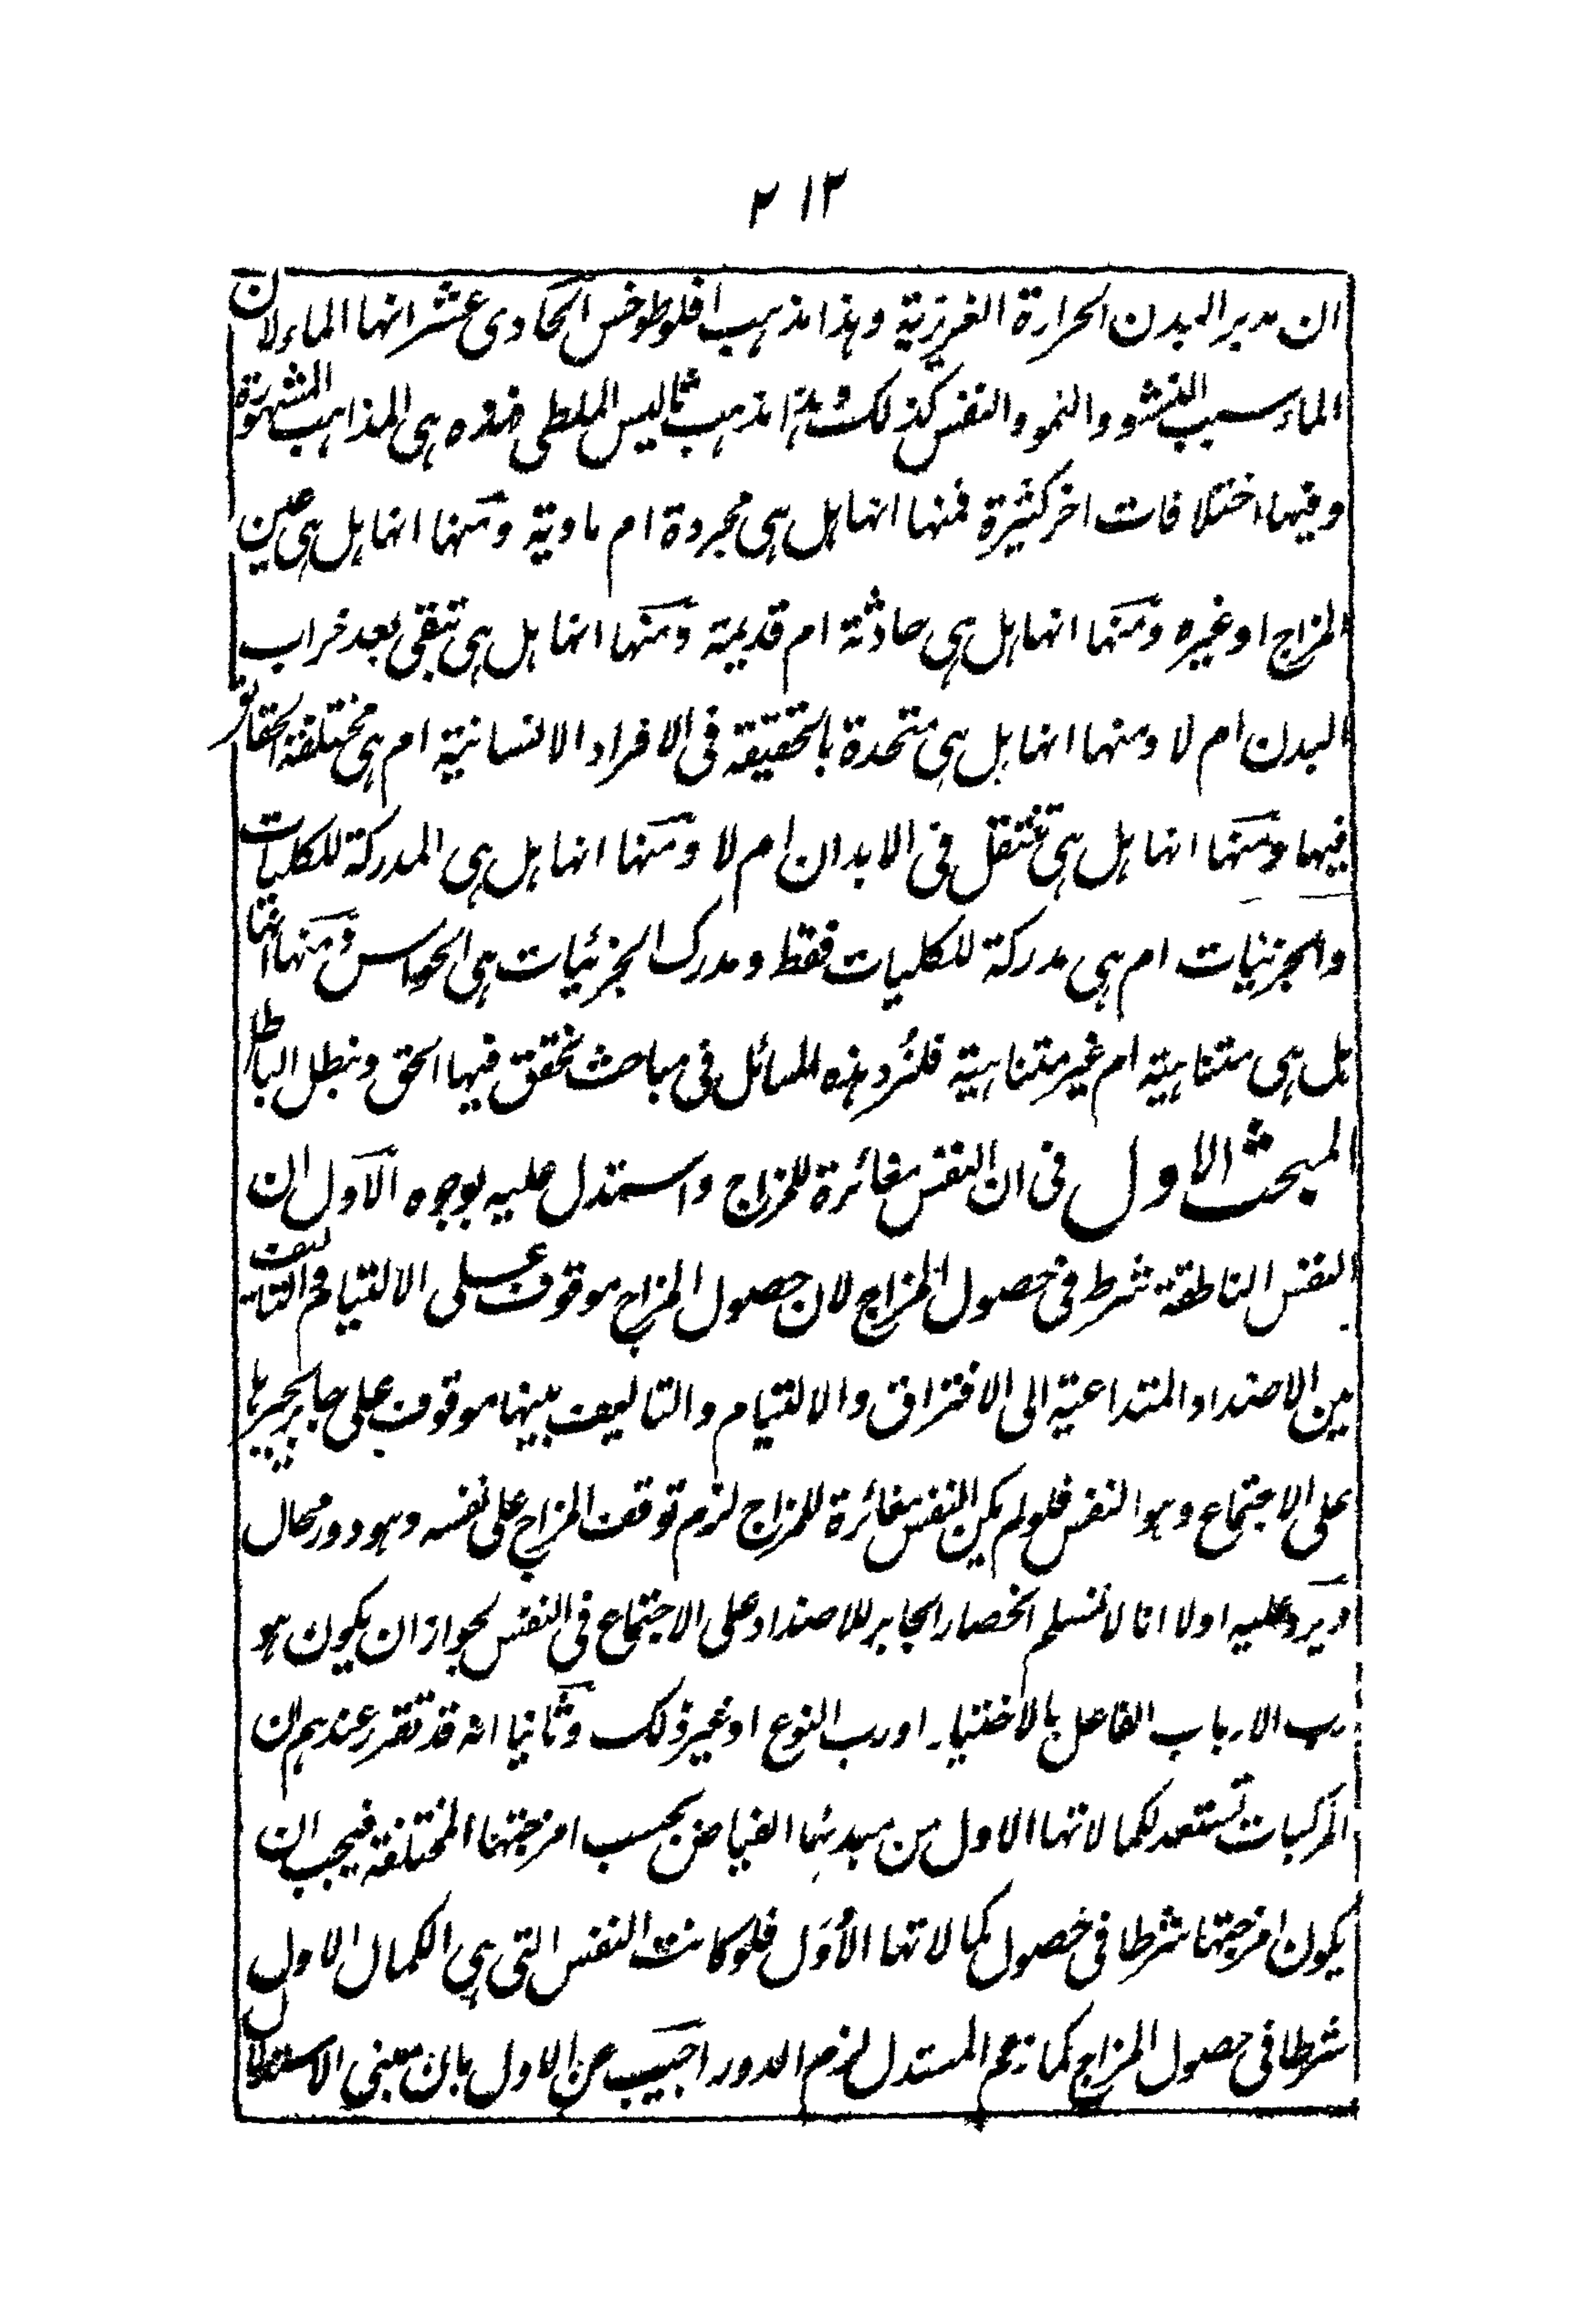 ٢١٢
ان مدبر البدن الحرارة الغريزية وهذا مذهب افلوطوخس الحادى عشر انها الماء لان
الماء سبب النشوو والنمو والنفس كذلك وهذا مذهب ثاليس الملطى فهذه هى المذاهب المشهورة
وفيها اختلافات اخر كثيرة فمنها انها هل هى مجردة ام مادية ومنها انها هل هى عين
المزاج او غيره ومنها انها هل هى حادثة ام قديمة ومنها انها هل هى تبقى بعد خراب
البدن ام لا ومنها انها هل هى متحدة بالحقيقة فى الافراد الانسانية ام هى مختلفة الحقائق
فيها ومنها انها هل هى تنتقل فى الابدان ام لا ومنها انها هل هى المدركة للكليات
والجزئيات ام هى مدركة للكليات فقط ومدرك الجزئيات هى الحواس ومنها انها
هل هى متناهية ام غير متناهية فلنورد هذه المسائل فى مباحث نحقق فيها الحق ونبطل الباطل
المبحث الاول فى ان النفس مغائرة للمزاج واستدل عليه بوجوه الاول ان
النفس الناطقة شرط فى حصول المزاج لان حصول المزاج موقوف على الالتيام والتاليف
بين الاضداد المتداعية الى الافتراق والالتيام والتاليف بينها موقوف على جابر يجبرها
على الاجتماع وهو النفس فلو لم يكن النفس مغائرة للمزاج لزم توقف المزاج على نفسه وهو دور محال
ويرد عليه اولا انا لا نسلم انحصار الجابر للاضداد على الاجتماع فى النفس لجواز ان يكون هو
رب الارباب الفاعل بالاختيار او رب النوع او غير ذلك وثانيا انه قد تقرر عندهم ان
المركبات تستعد لكمالاتها الاول من مبدئها الفياض بحسب امزجتها المختلفة فيجب ان
يكون امزجتها شرطا فى حصول كمالاتها الأُوَل فلو كانت النفس التى هى الكمال الاول
شرطا فى حصول المزاج كما زعم المستدل لزم الدور اجيب عن الاول بان مبنى الاستدلال